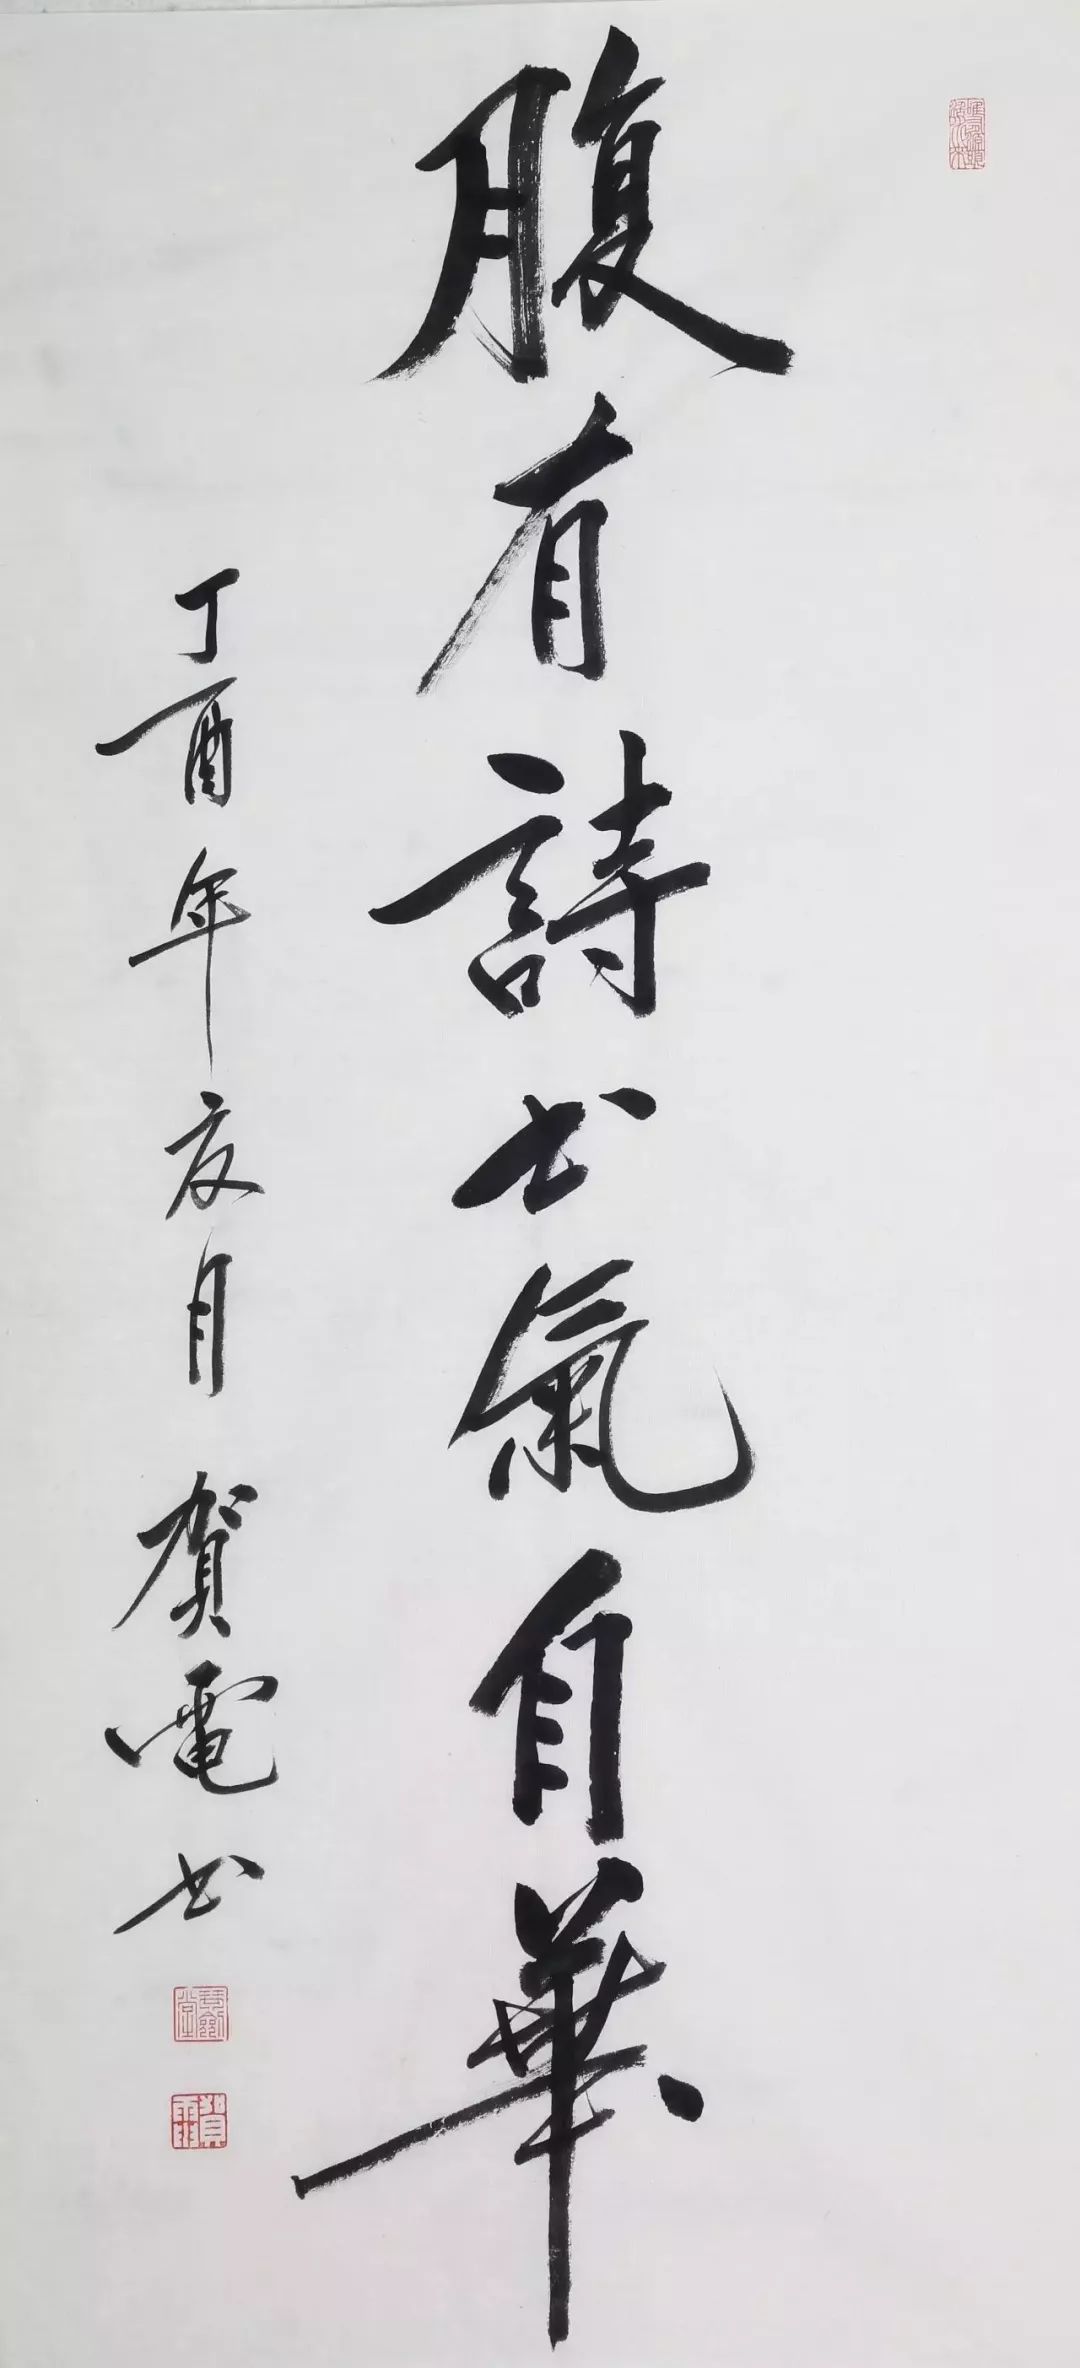 腹有詩书氣自華
丁酉年夜月 賀電书